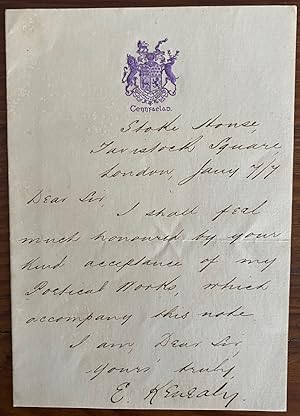 Cennfaelad.
Stoke House,
Tavistock Square
London, Jany 7/7
Dear Sir,
I shall feel
much honoured by your
kind acceptance of my
Poetical Works, which
accompany this note.
I am, Dear Sir,
Yours truly,
E. Kenealy.